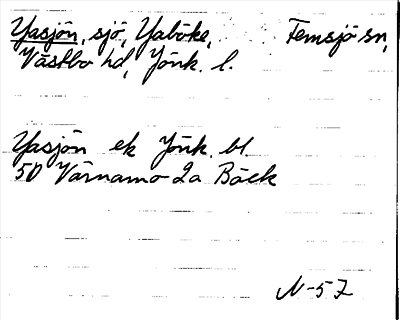 Yasjön, sjö, Yaböke, Femsjö sn,
Västbo hd, Jönk. l.
Yasjön ek Jönk. bl.
50 Värnamo 2a Bäck
N-57